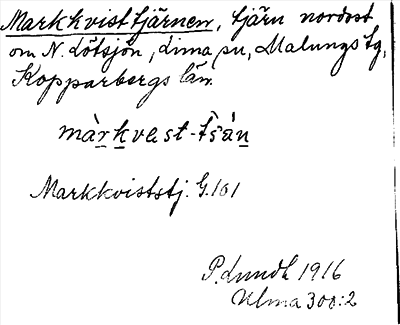 Markkvisttjärnen, tjärn nordost
om N. Lötsjön, Lima sn, Malungs tg,
Kopparbergs län.
màrkvest-tšä̀n
Markkviststj. G.101
P. Lundh 1916
Ulma 300:2